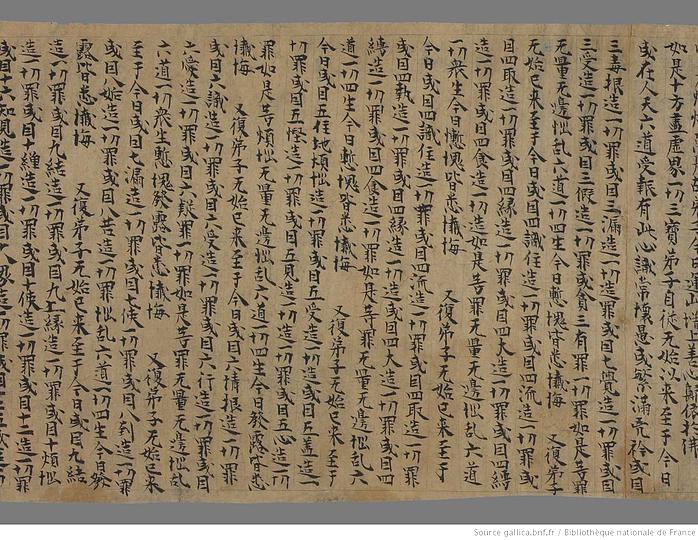 如是十方盡虛界一切三寶弟子自従无始以来至于今日
或在人天六道受報有此心識常懷愚或繁滿或因
三毒根造一切罪或因三漏造一切罪或因三覺造一切罪或因
三受造一切罪或因三假造一切罪或貪三有罪一切罪如是等罪
无量无邊惱乱六道一切四生今日慙愧皆悉懺悔 又復弟子
无始已来至于今日或因四識住造一切罪或因四流造一切罪或
因四取造一切罪或因四緣造一切罪或因四大造一切罪或因四縛
造一切罪或因四食造一切罪如是等罪无量无邊惱乱六道
一切衆生今日慙愧皆悉懺悔 又復弟子无始已来至于
今日或因四識住造一切罪或因四流造一切罪或因四取造一切罪
或因四執造一切罪或因四緣造一切罪或因四大造一切罪或因四
縛造一切罪或因四食造一切罪如是等罪无量无邊惱乱六
道一切四生今日慙愧皆悉懺悔 又復弟子无始已来至于
今日或因五住地煩惱造一切罪或因五受造一切罪或因五盖造一
切罪或因五慳造一切罪或因五見造一切罪或因五心造一切
罪如是等煩惱无量无邊惱乱六道一切四生今日發露皆悉
懺悔 又復弟子无始已来至于今日或因六情根造一切罪
或因六識造一切罪或因六受造一切罪或因六行造一切罪或因
六愛造一切罪或因六疑罪一切罪如是等罪无量无邊惱乱
六道一切衆生慙愧發露皆悉懺悔 又復弟子无始已来
至于今日或因七漏造一切罪或因七使一切罪或因八到造一切罪
或因八垢造一切罪或因八苦造一切罪惱乱六道一切四生今日發
露皆悉懺悔 又復弟子无始已来至于今日或因九結
造一切罪或因九結造一切罪或因九上緣造一切罪或因十煩惱
造一切罪或因十纏造一切罪或因十使造一切罪或因十一
或因十六知見造一切罪或因十八界造一切罪或因廿五
Source gallica.bnf.fr / Bibliothèque nationale de France